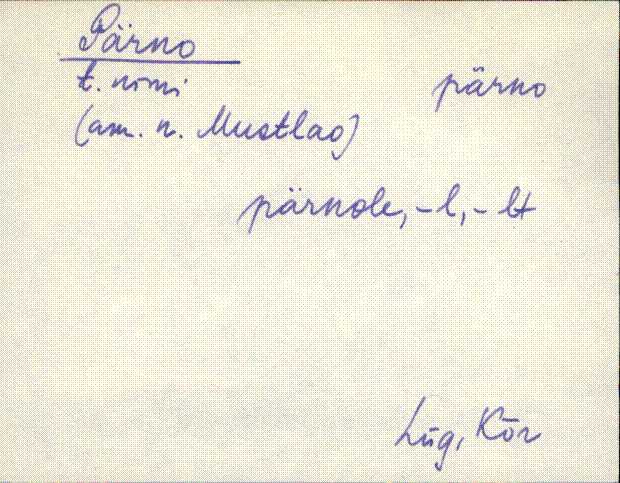 Pärno
t. nimi
pärno
(am. n. Mustlao)
pärnole, -l, -lt
Lüg, Kõr